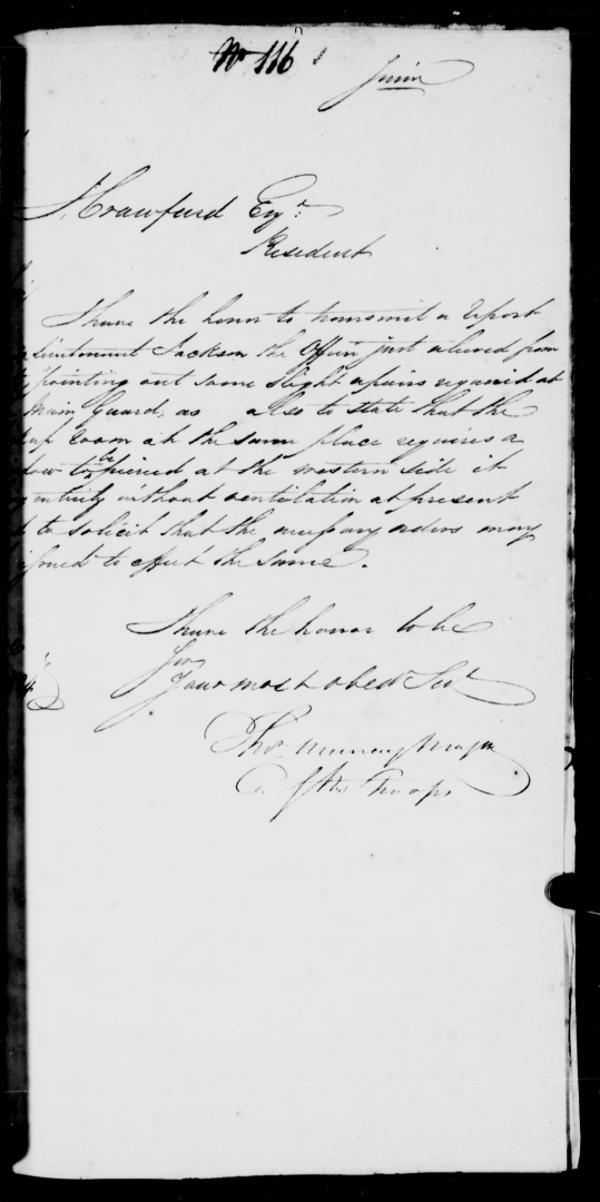 No 116
J. Crawfurd Esqr.
Resident
I have the honor to transmit a report
Lieutenant Jackson the Officer just relieved from
pointing out some slight repairs required at
Main Guard, as also to state that the
room at the same place requires a
dow to be pierced at the western side it
entirely without ventilation at present
to solicit that the necessary orders may
issued to effect the same.
I have the honor to be
Sir
Your most obedt Servt
Thos. Murray
Troops